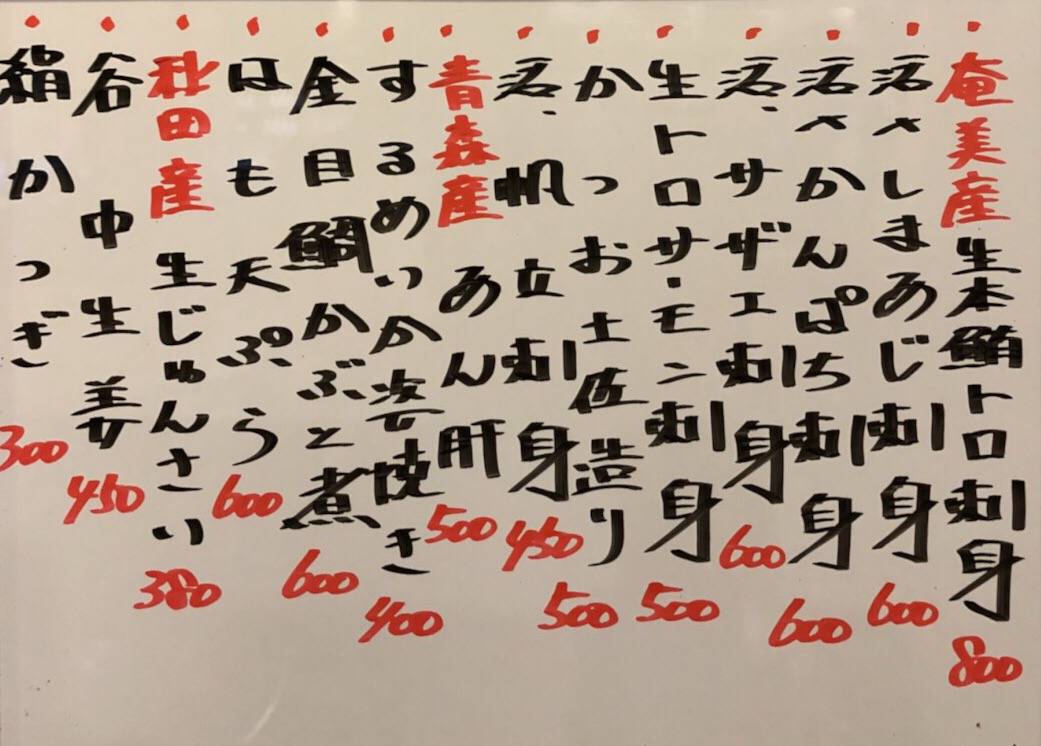 奄美産生本鮪トロ刺身 800
活〆しまあじ刺身 600
活〆かんぱち刺身 600
活、サザエ刺身 600
生トロサーモン刺身 500
かつお土佐造り 500
活、帆立刺身 450
青森産あん肝 500
するめいか姿焼き 400
金目鯛かぶと煮 600
はも天ぷら 600
秋田産生じゅんさい 380
谷中生姜 450
絹かつぎ 300